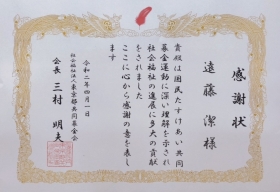 感謝状
遠藤 潔 様
貴殿は国民たすけあい共同
募金運動に深い理解を示され
社会福祉の進展に多大の貢献
をされました
ここに心から感謝の意を表し
ます
令和二年四月一日
社会福祉法人東京都共同募金会
会長 三村 明夫